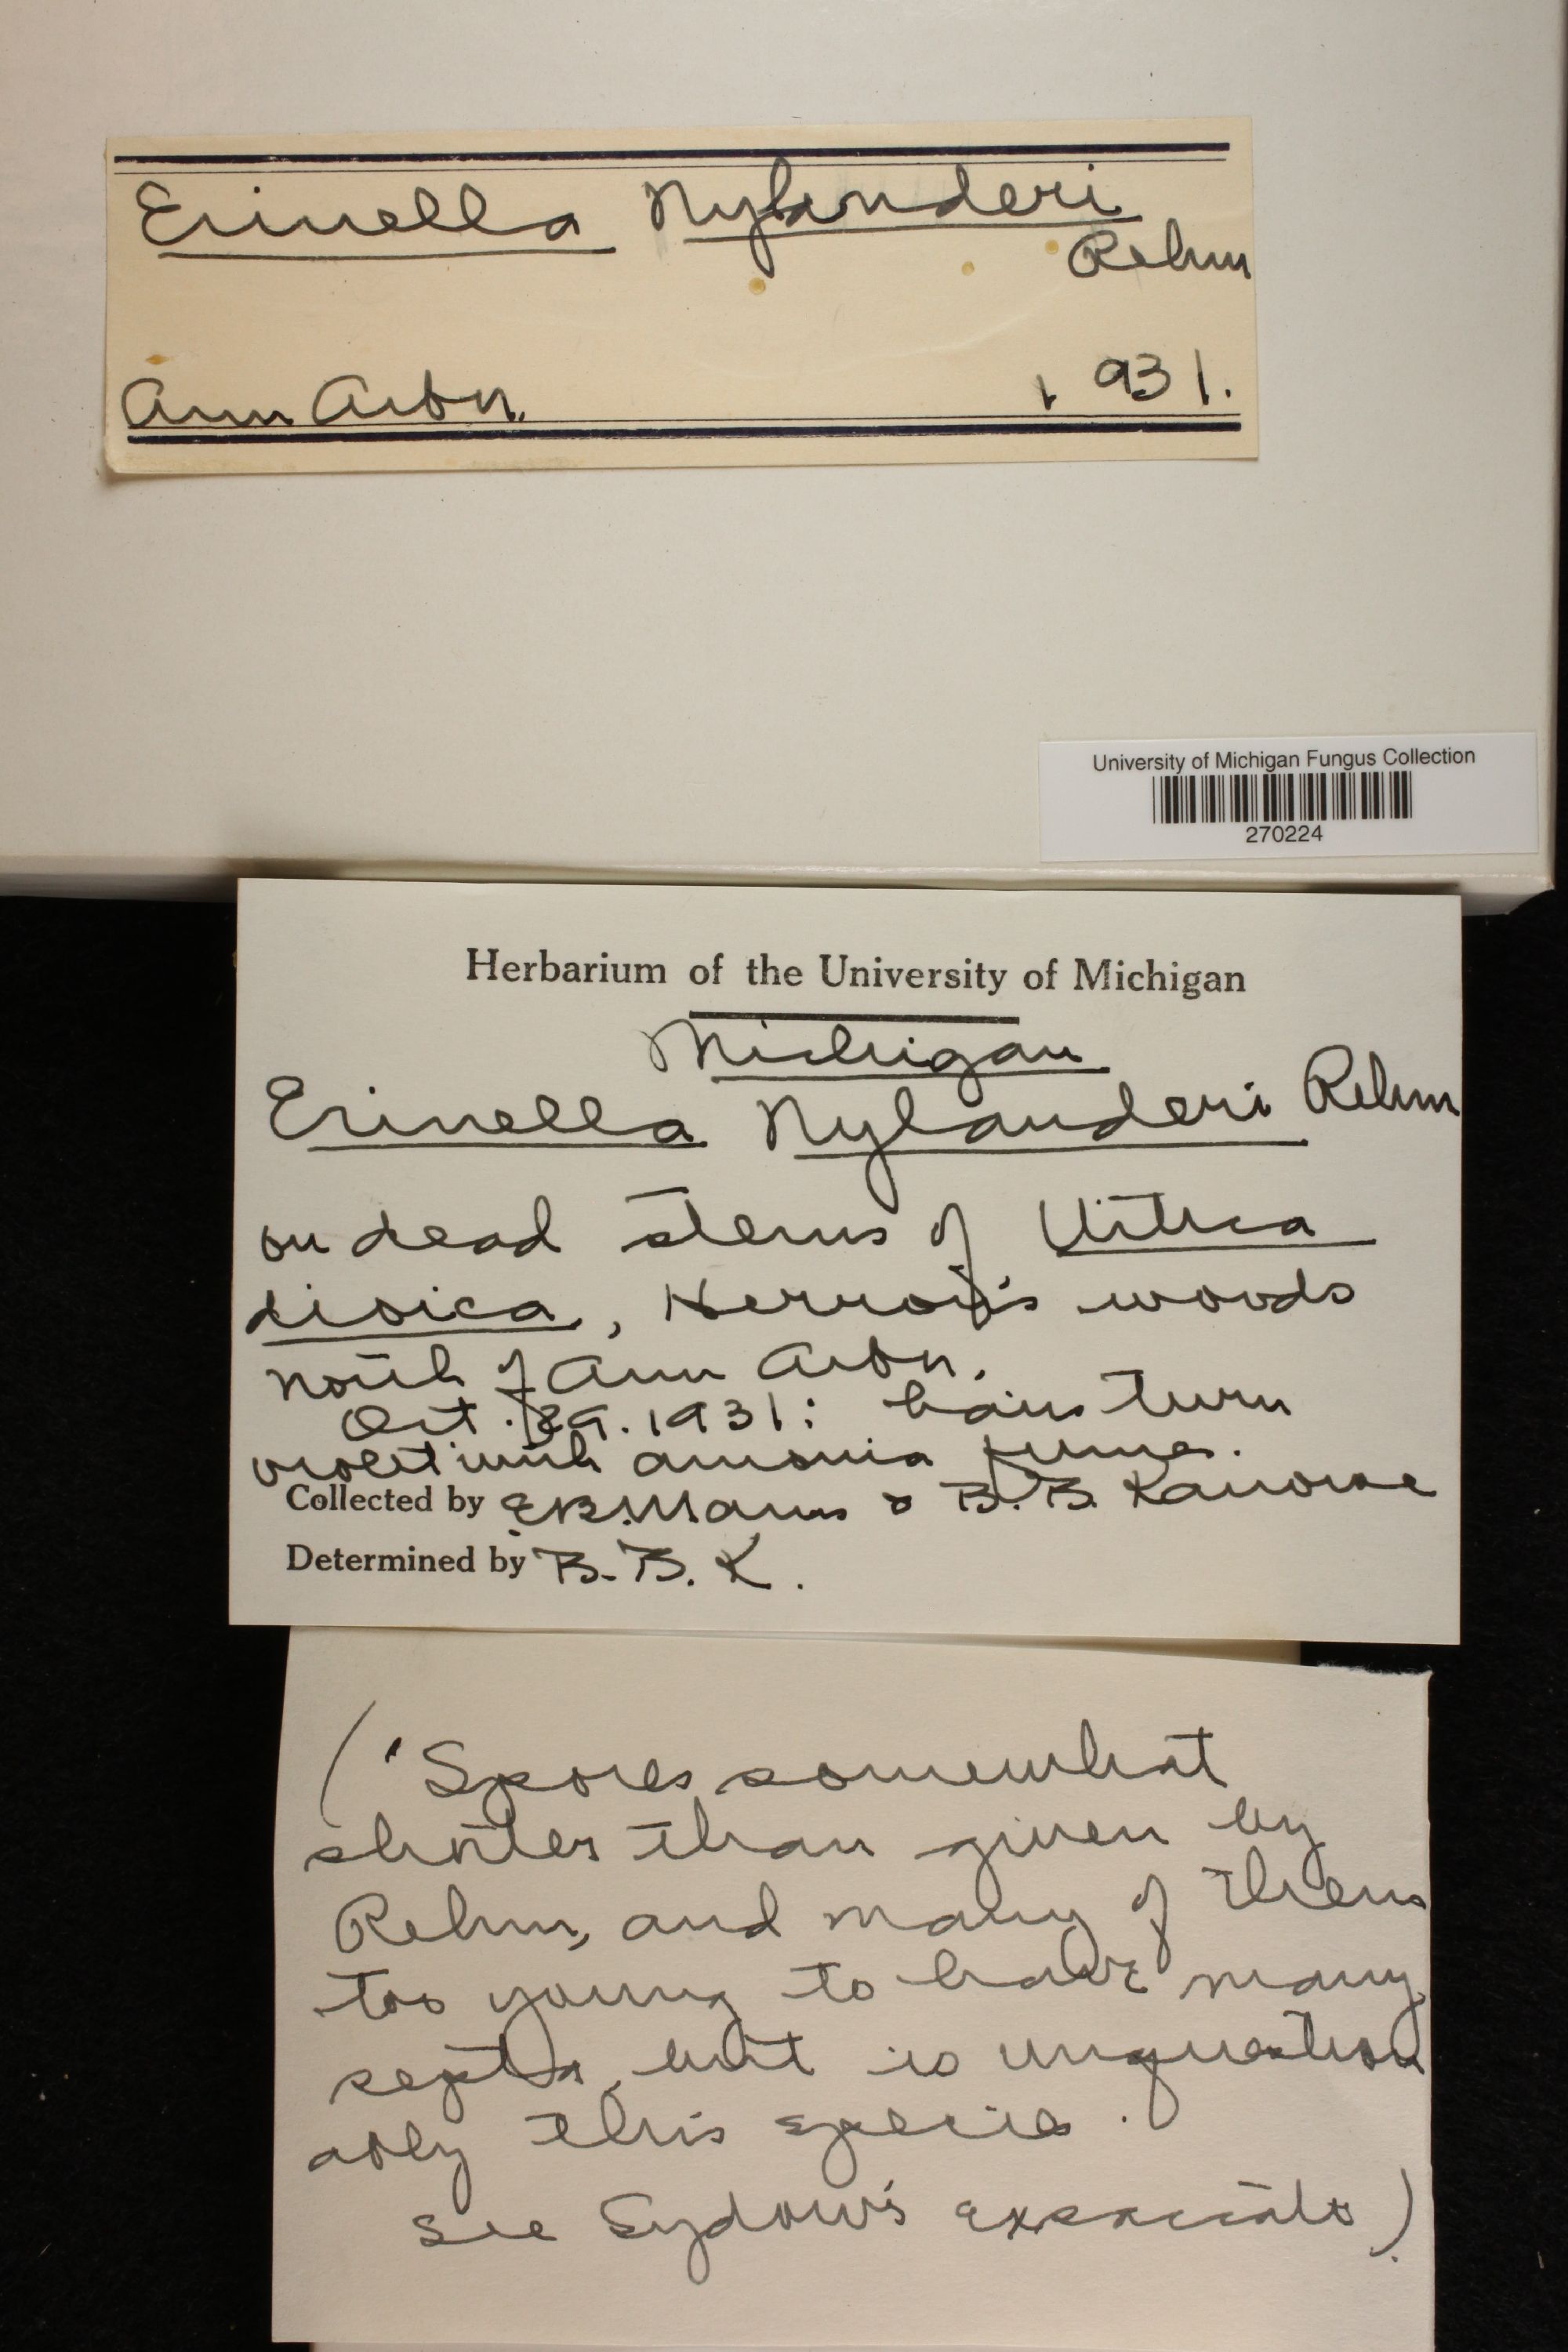 Erinella Nylanderi
Rehm
Ann Arbor. 1931.
University of Michigan Fungus Collection
270224
Herbarium of the University of Michigan
Michigan
Erinella Nylanderi Rehm
on dead stems of Urtica
dioica, woods
North of Ann Arbor.
Oct. 1931: hairs turn
violet with amonia fumes.
Collected by E.B. Mains & B. B. Kanouse
Determined by B. B. K.
("Spores somewhat
shorter than given by
Rehm, and many of them
too young to have many
septa, but is unquestion
ably this species.
See Sydow's exsiccato)